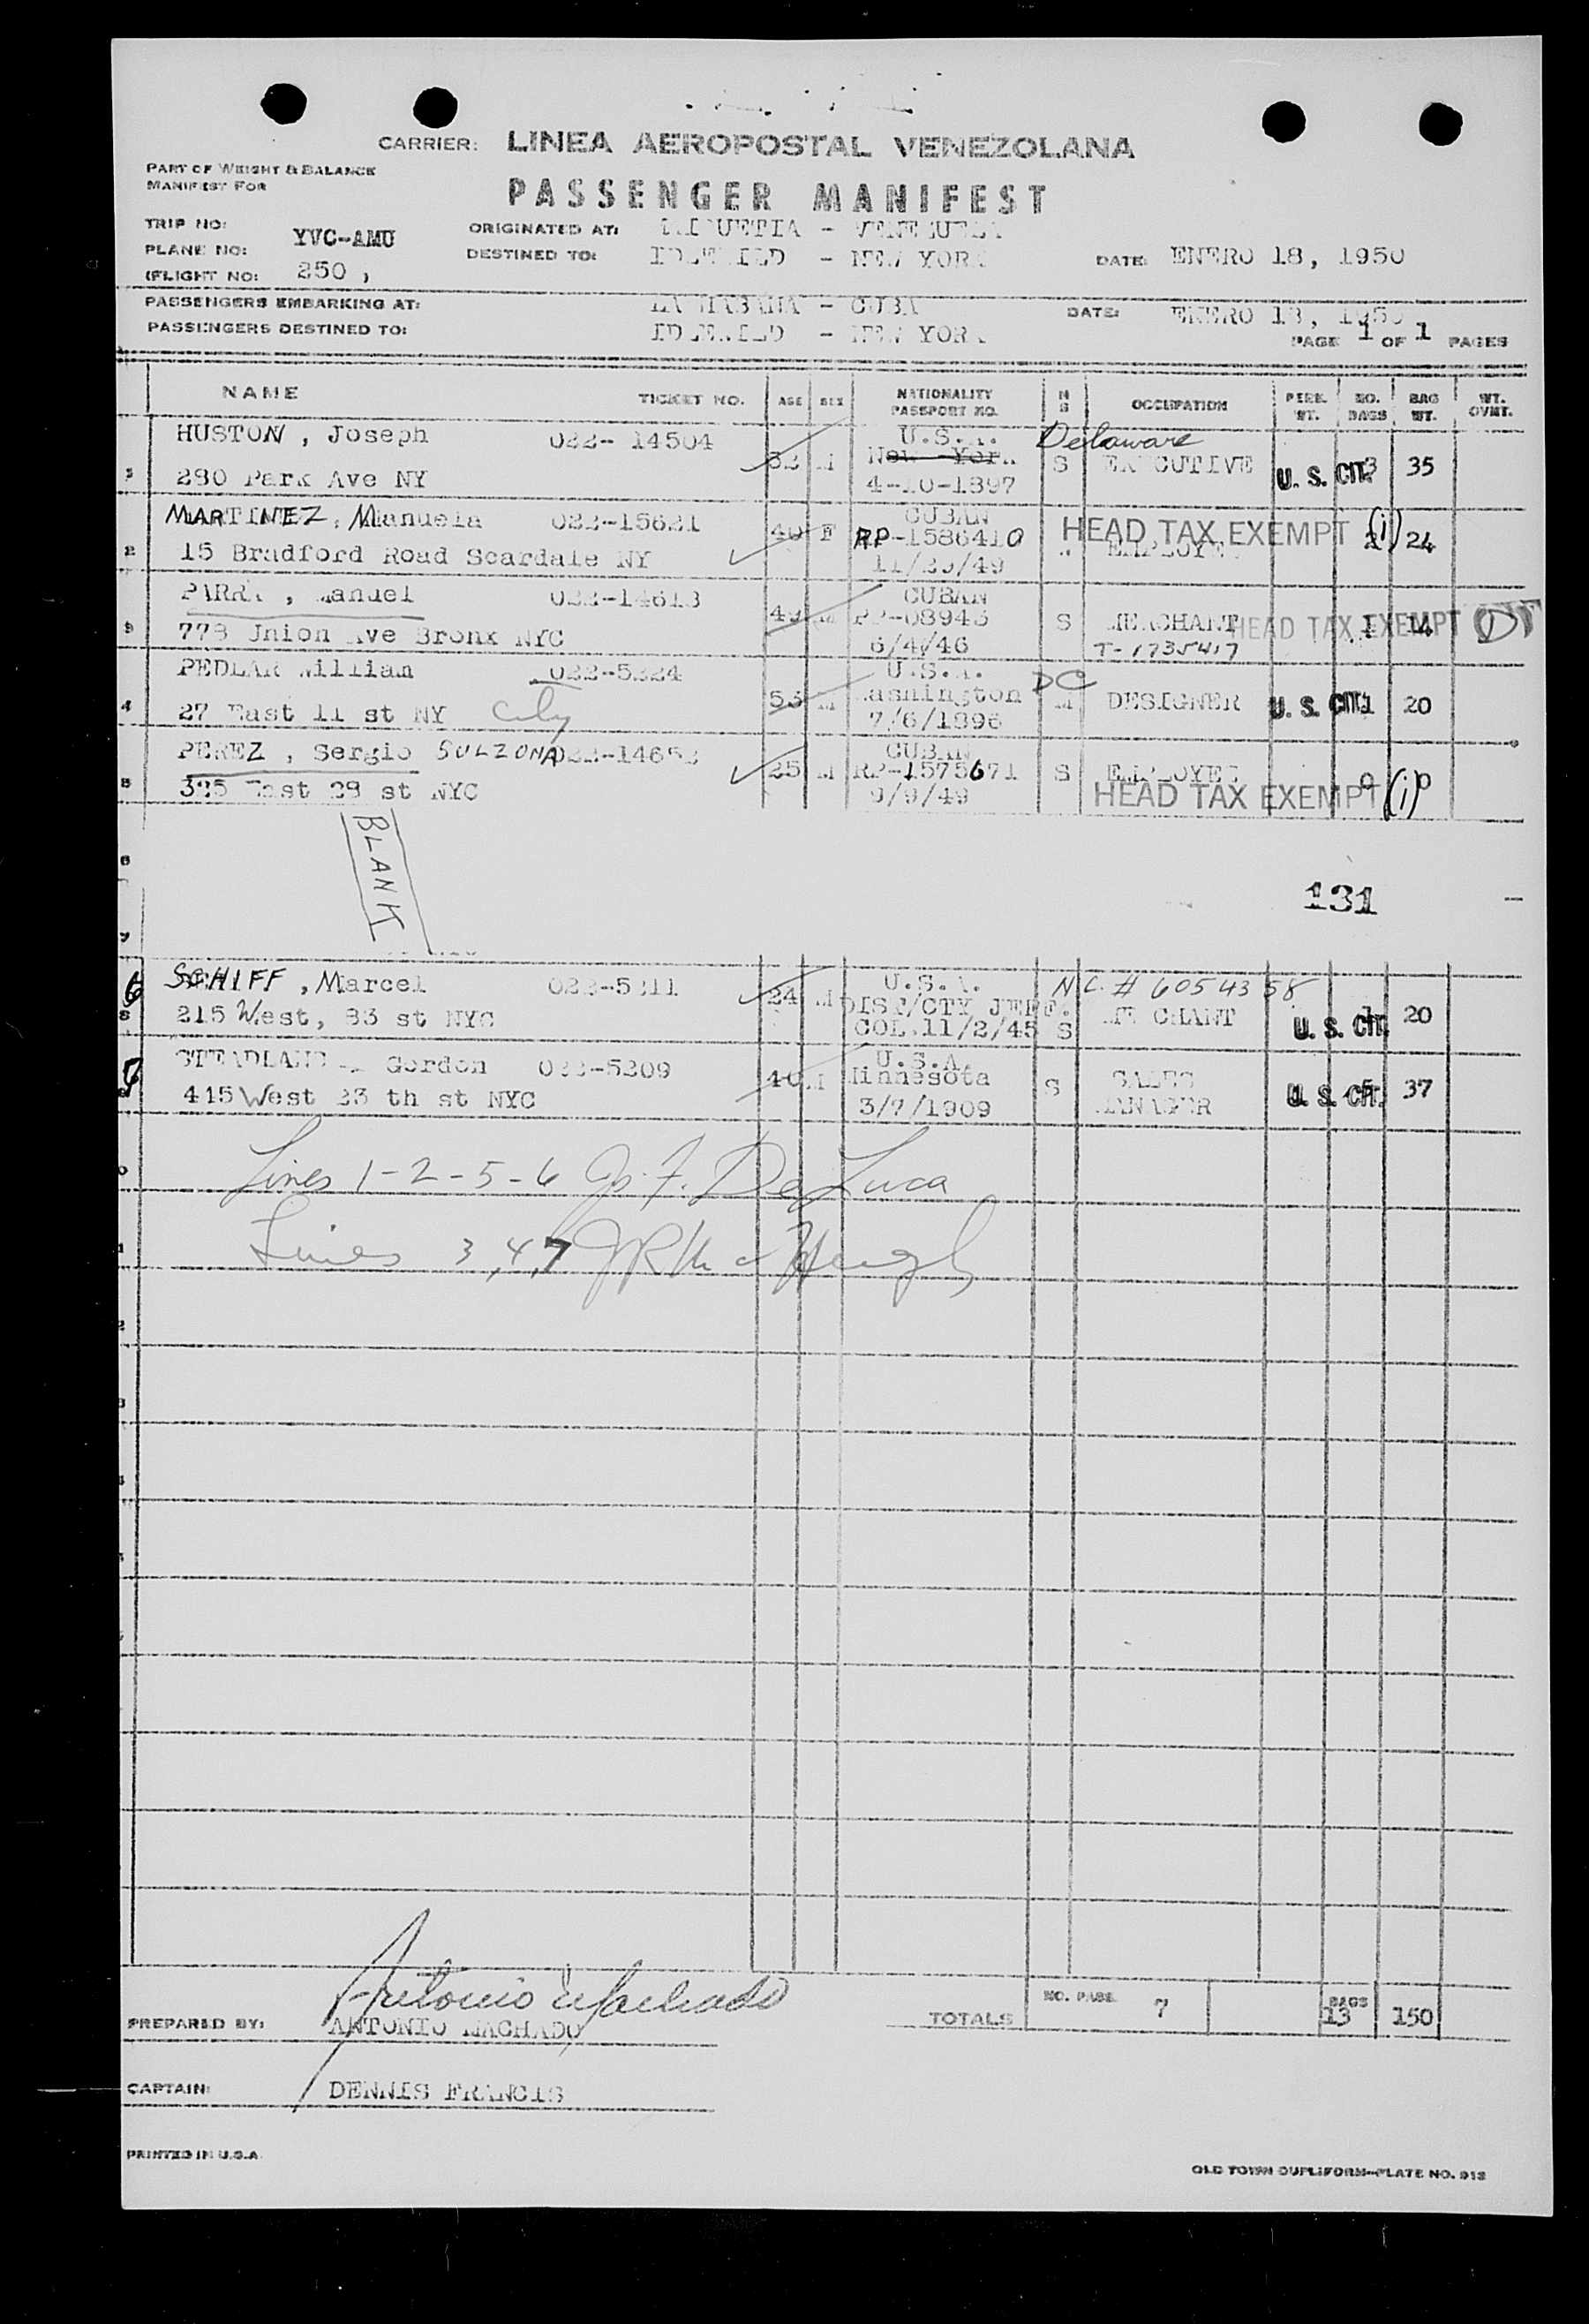 CARRIER: LINEA AEROPOSTAL VENEZOLANA
PART OF WEIGHT & BALANCE
MANIFEST FOR
PASSENGER MANIFEST
TRIP NO:
PLANE NO: YVC-AMU
FLIGHT NO: 250 ,
ORIGINATED AT: - VENEZUELA
DESTINED TO: IDLEWILD - NEW YORK
DATE: ENERO 18, 1950
PASSENGERS EMBARKING AT: LA HABANA - CUBA
DATE: ENERO 18, 1950
PASSENGERS DESTINED TO: IDLEWILD - NEW YORK
PAGE 1 OF 1 PAGES
NAME TICKET NO. AGE SEX NATIONALITY PASSPORT NO. M S OCCUPATION PERS. WT. NO. BAGS BAG WT. WT. OVWT.
HUSTON , Joseph 022- 14504 U.S.A. Delaware
1 52 M New York S EXECUTIVE U. S. CIT. 3 35
280 Park Ave NY 4-10-1897
MARTINEZ , Manuela 022-15621 CUBAN
40 F RP-1586410 HEAD TAX EXEMPT (i) 24
2 15 Bradford Road Scardale NY EMPLOYEE
11/25/49
PARRA , Manuel 022-14613 CUBAN
49 M RP-08943 S MERCHANT HEAD TAX EXEMPT 1 14
3 778 Union Ave Bronx NYC 6/4/46 T-1735417
PEDLAR William 022-5224 U.S.A.
53 M Washington DC M DESIGNER U. S. CIT. 1 20
4 27 East 11 st NY City 7/6/1896
PEREZ , Sergio SOLZONA 022-14652 CUBAN
25 M RP-1575671 S EMPLOYEE 0 0
5 325 East 28 st NYC 9/9/49 HEAD TAX EXEMPT (i)
BLANK
6
7
131
6 SCHIFF , Marcel 022-5211 U.S.A. N C. # 6054358
24 M DIST/CTY JEFF. MERCHANT U. S. CIT. 20
8 215 West, 83 st NYC COL.11/2/45 S
7 Gordon 022-5209 U.S.A.
40 M Minnesota S SALES MANAGER U. S. CIT. 37
415 West 23 th st NYC 3/7/1909
Lines 1-2-5-6 Jos. F. De Luca
Lines 3,4,7
PREPARED BY: Antonio Machado
ANTONIO MACHADO
TOTALS NO. PASS. 7 BAGS 13 150
CAPTAIN: DENNIS FRANCIS
PRINTED IN U.S.A.
OLD TOWN DUPLIFORM-PLATE NO. 913